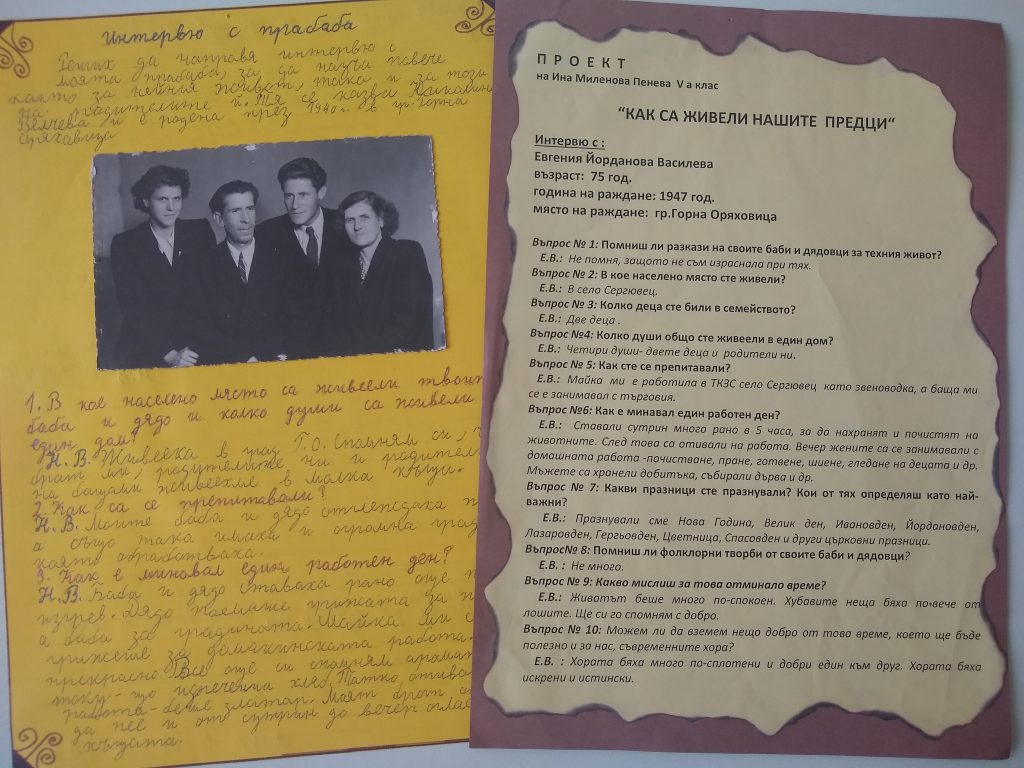 Интервю с прабаба
Реших да направя интервю с
моята прабаба, за да науча повече
както за нейния живот, така и за този
на родителите и. Тя се казва
Велчева и е родена през 1940 г. в гр. Горна
Оряховица
1. В кое населено място са живеели твоите
баба и дядо и колко души са живели
един дом?
Н.В. Живеека в град Г.О. Спомням си,
брат ми, родителите ни и родители
на баща ми живеехме в малка къща.
2. Как са се препитавали?
Н.В. Моите баба и дядо отглеждаха
а също така имаха и огромна град
която обработваха.
3. Как е минавал един работен ден?
Н.В. Баба и дядо ставаха рано още
изгрев. Дядо поемаше грижата за
а баба за градината. Майка ми с
грижеше за домакинската работа.
прекрасно. Все още си спомням аромат
току-що изпечения хляб. Татко отива
работа - беше златар. Моят брат
да пее и от сутрин до вечер оглас
къщата.
ПРОЕКТ
на Ина Миленова Пенева V а клас
"КАК СА ЖИВЕЛИ НАШИТЕ ПРЕДЦИ"
Интервю с :
Евгения Йорданова Василева
възраст: 75 год.
година на раждане: 1947 год.
място на раждане: гр.Горна Оряховица
Въпрос № 1: Помниш ли разкази на своите баби и дядовци за техния живот?
Е.В.: Не помня, защото не съм израснала при тях.
Въпрос № 2: В кое населено място сте живели?
Е.В.: В село Сергювец.
Въпрос № 3: Колко деца сте били в семейството?
Е.В.: Две деца .
Въпрос №4: Колко души общо сте живеели в един дом?
Е.В.: Четири души- двете деца и родители ни.
Въпрос № 5: Как сте се препитавали?
Е.В.: Майка ми е работила в ТКЗС село Сергювец като звеноводка, а баща ми
се е занимавал с търговия.
Въпрос №6: Как е минавал един работен ден?
Е.В.: Ставали сутрин много рано в 5 часа, за да нахранят и почистят на
животните. След това са отивали на работа. Вечер жените са се занимавали с
домашната работа -почистване, пране, готвене, шиене, гледане на децата и др.
Мъжете са хранели добитъка, събирали дърва и др.
Въпрос № 7: Какви празници сте празнували? Кои от тях определяш като най-
важни?
Е.В.: Празнували сме Нова Година, Велик ден, Ивановден, Йордановден,
Лазаровден, Гергьовден, Цветница, Спасовден и други църковни празници.
Въпрос№ 8: Помниш ли фолклорни творби от своите баби и дядовци?
Е.В. : Не много.
Въпрос № 9: Какво мислиш за това отминало време?
Е.В.: Животът беше много по-спокоен. Хубавите неща бяха по-вече от
лошите. Ще си го спомням с добро.
Въпрос № 10: Можем ли да вземем нещо добро от това време, което ще бъде
полезно и за нас, съвременните хора?
Е.В. : Хората бяха много по-сплотени и добри един към друг. Хората бяха
искрени и истински.